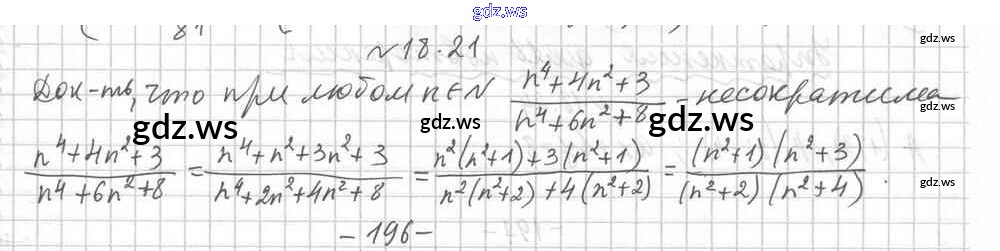 gdz.ws
81
gdz.ws
№18.21
Док-ть, что при любом n∈N (n⁴+4n²+3)/(n⁴+6n²+8) - несократима
gdz.ws gdz.ws gdz.ws gdz.ws
(n⁴+4n²+3)/(n⁴+6n²+8) = (n⁴+n²+3n²+3)/(n⁴+2n²+4n²+8) = (n²(n²+1)+3(n²+1))/(n²(n²+2)+4(n²+2)) = ((n²+1)(n²+3))/((n²+2)(n²+4)).
gdz.ws
-196-
gdz.ws